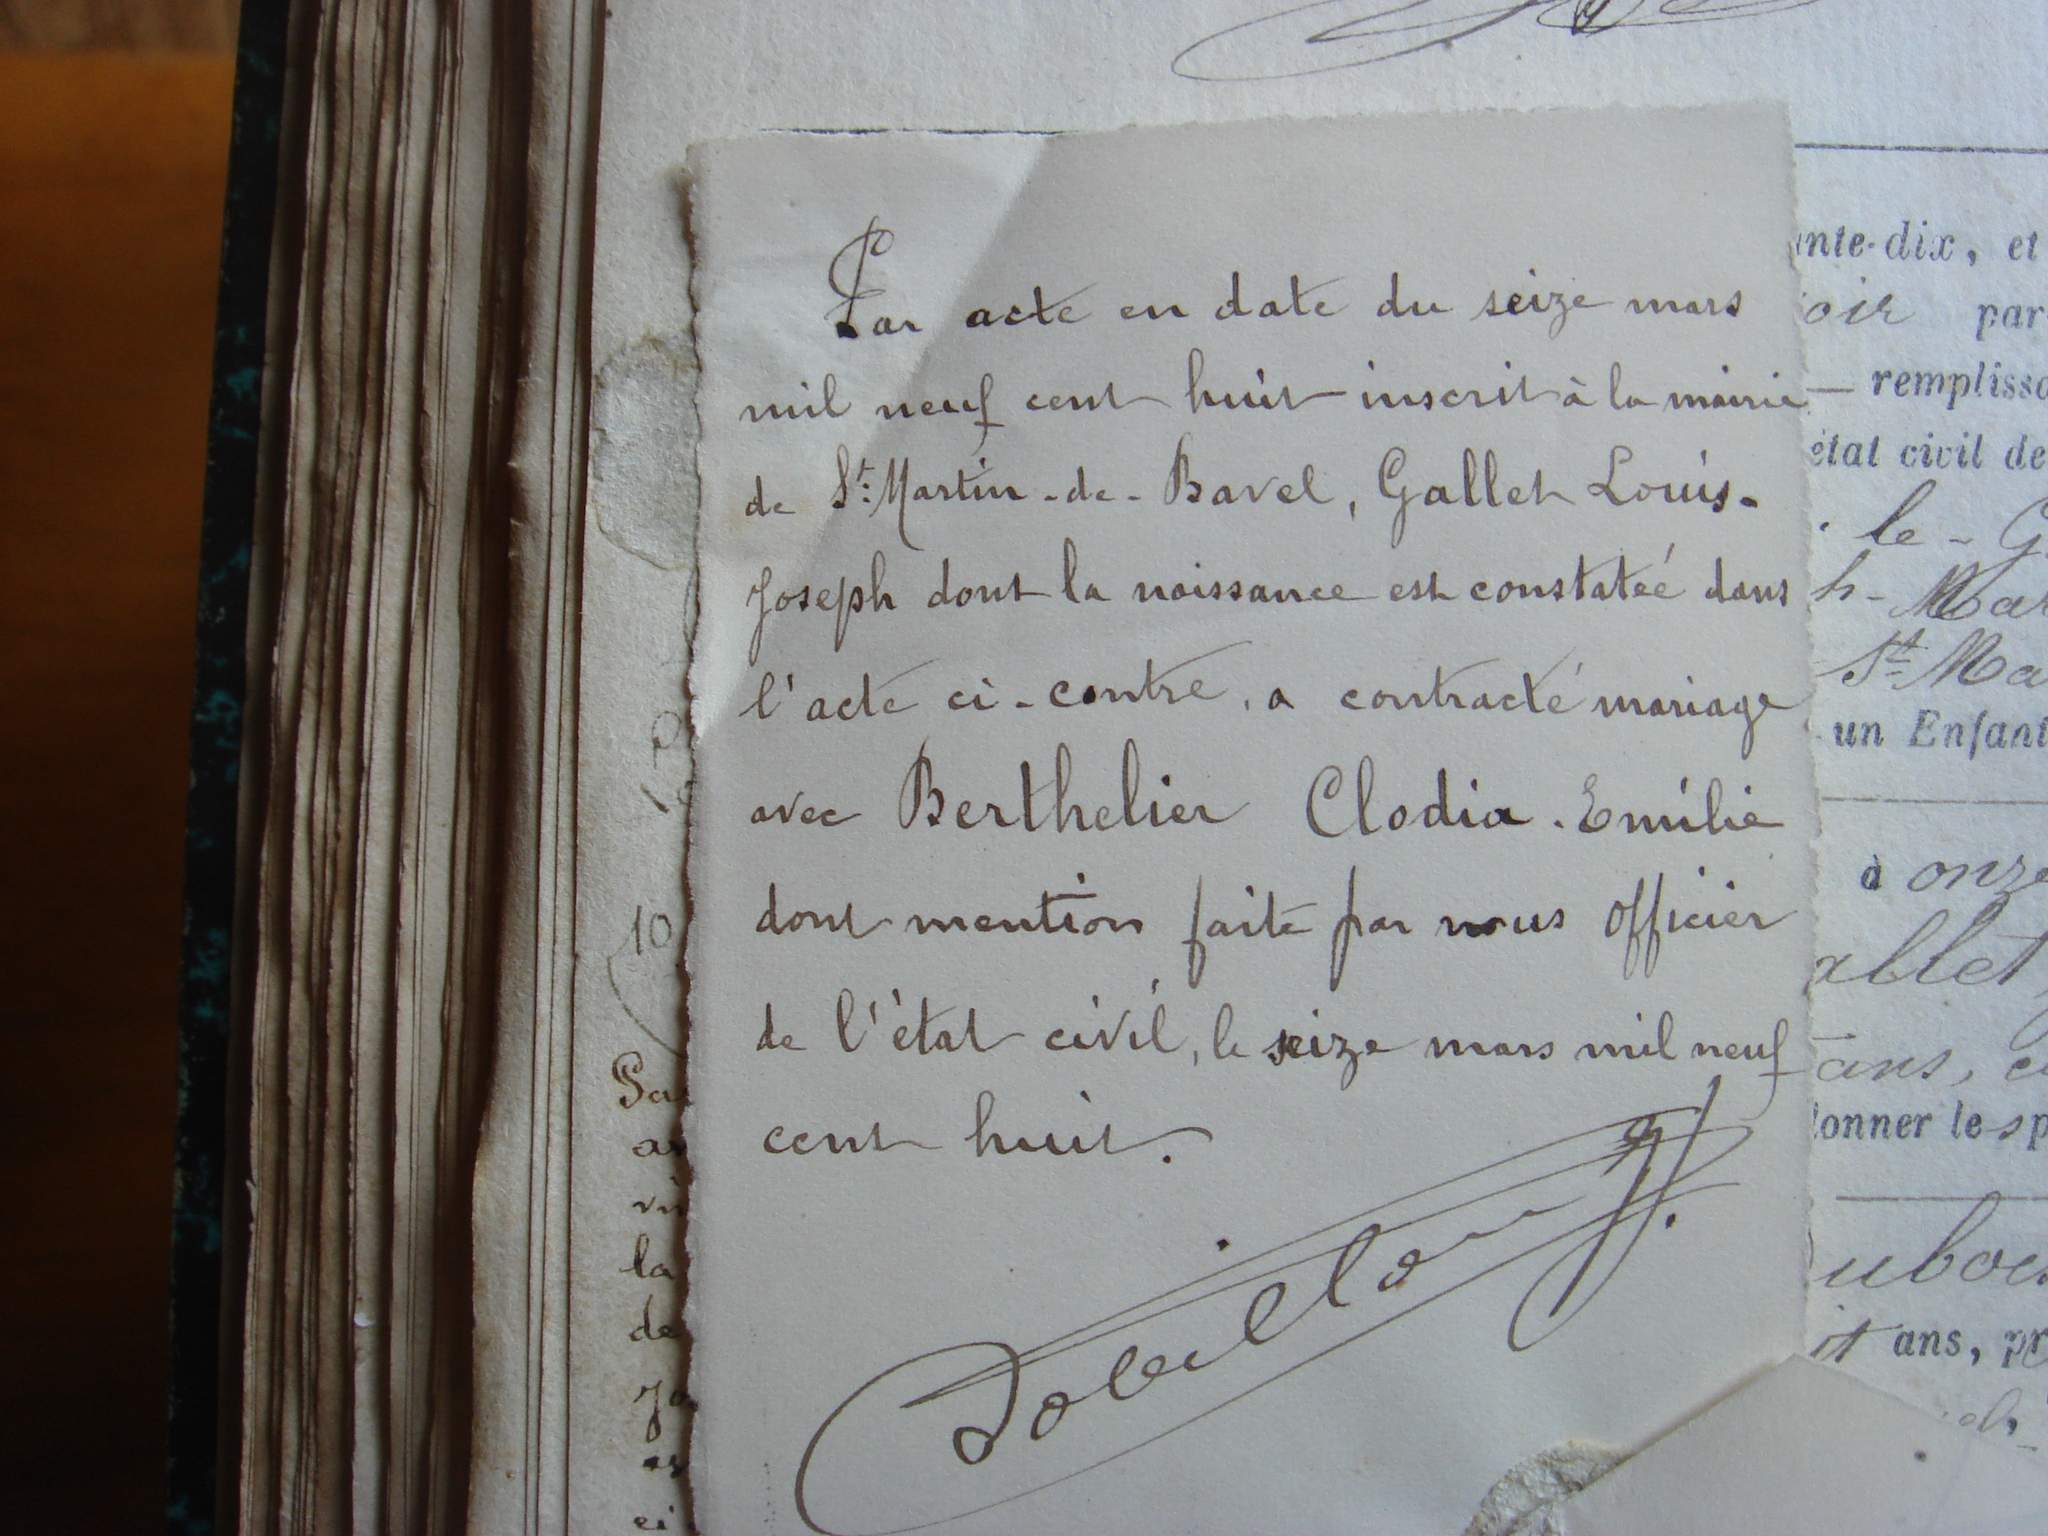 Par acte en date du seize mars
mil neuf cent huit inscrit à la mairie
de St. Martin-de-Bavel, Gallet Louis-
Joseph dont la naissance est constatée dans
l'acte ci-contre, a contracté mariage
avec Berthelier Clodia-Emilie
dont mention faite par nous officier
de l'état civil, le seize mars mil neuf
cent huit.
ante-dix, et
oir par
— remplisso
état civil de
le - G
h - Mar
St Ma
un Enfant
à onze
allet
ans, e
donner le sp
uboi
it ans, pr
10
Pa
la
de
Jo